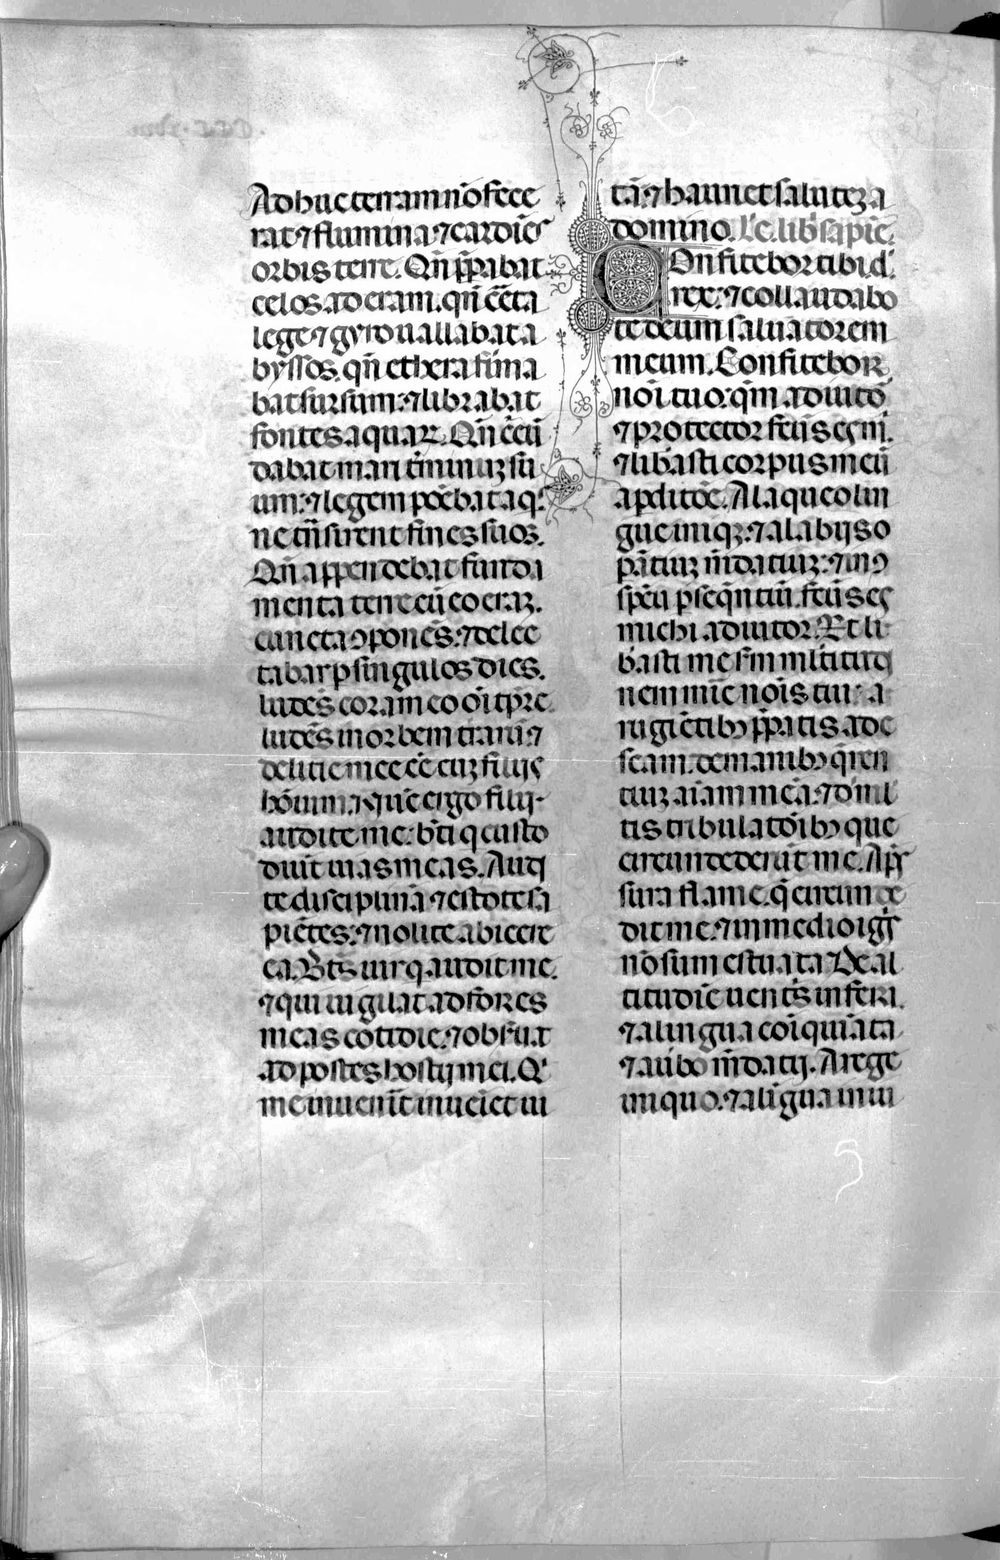 Adhuc terram nō fece
rat ⁊ flumina ⁊ cardiēs
orbis terre. Qn̄ p̄parabat
celos aderam. qn̄ c̄ta
lege ⁊ gyro uallabat a
byssos. qn̄ ethera firma
bat sursum: ⁊ librabat
fontes aquaꝝ. Qn̄ circū
dabat mari t̄minuꝫ su
um: ⁊ legem ponebat aqs
ne trāsirent fines suos.
Qn̄ appendebat funda
menta terre cū eo eraꝫ.
cuncta ↄponēs: ⁊ delec
tabar ꝑ singulos dies.
ludēs coram eo oī tp̄re
ludēs in orbem terraꝝ ⁊
delitie mee eē cuꝫ filijs
hoīum. Nunc ergo filij
audite me: bt̄i q̄ custo
diūt uias meas. Audi
te disciplinā ⁊ estote sa
piētes: ⁊ nolite abicere
ea. Bt̄s uir q̄ audit me.
⁊ qui uigilat ad fores
meas cotidie: ⁊ obseruat
ad postes hostij mei. Q'
me inuenīt inueīet ui
tā: ⁊ hauriet saluteꝫ a
domino. lc̄. lib̄ sapiē.
COnfitebor tibi d.
rex: ⁊ collaudabo
te deum saluatorem
meum. Confitebor
noī tuo: qm̄ adiutō
⁊ protector fcūs es m̄.
⁊ libasti corpus meū
a ꝑditōe. A laqueo lin
gue iniqꝫ: ⁊ a labijs o
ꝑātiuꝫ m̄daciuꝫ: ⁊ in ↄ
spcū ꝑseqn̄tiū. fcūs es
michi adiutor. Et li
basti me sm̄ mltitudi
nem mīe noīs tui: a
rugiētibꝫ p̄paratis ad e
scam. de manibꝫ q̄ren
tiuꝫ aīam meā: ⁊ d' ml
tis tribulatōibꝫ que
circundederūt me. A p̄s
sura flame. q̄ circunde
dit me. ⁊ in medio igīs
nō sum estuata. De al
titudīe uentrs inferi.
⁊ a lingua coīquīata
⁊ a ūbo m̄dacij. A rege
iniquo: ⁊ a līgua iniu